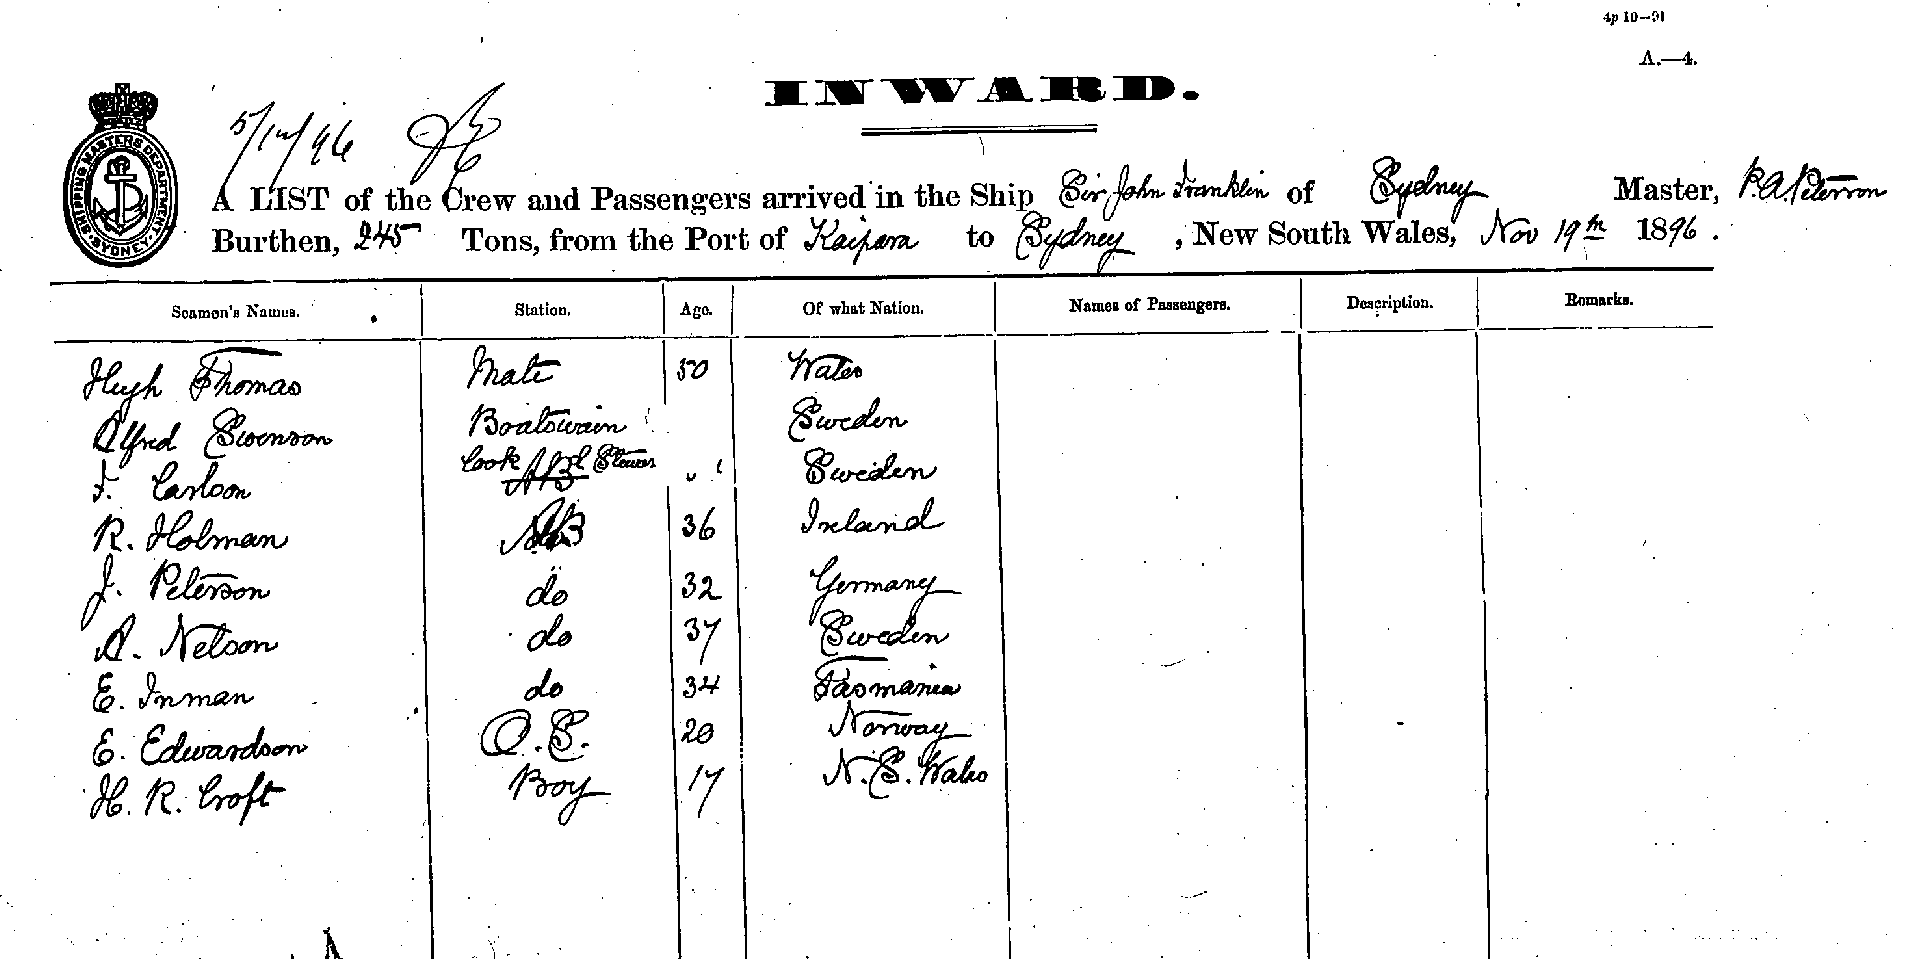 4p 10—91
A.—4.
INWARD.
5/12/96
SHIPPING MASTERS DEPARTMENT
·SYDNEY·
A LIST of the Crew and Passengers arrived in the Ship Sir John Franklin of Sydney Master, P. A. Peterson
Burthen, 245 Tons, from the Port of Kaipara to Sydney, New South Wales, Nov 19th 1896.
Seamen's Names. Station. Age. Of what Nation. Names of Passengers. Description. Remarks.
Hugh Thomas Mate 50 Wales
Alfred Swenson Boatswain Sweden
F. Carlson Cook & Steward AB Sweden
R. Holman AB 36 Ireland
J. Peterson do 32 Germany
A. Nelson do 37 Sweden
E. Inman do 34 Tasmania
E. Edwardson O.S. 20 Norway
H. R. Croft Boy 17 N. S. Wales